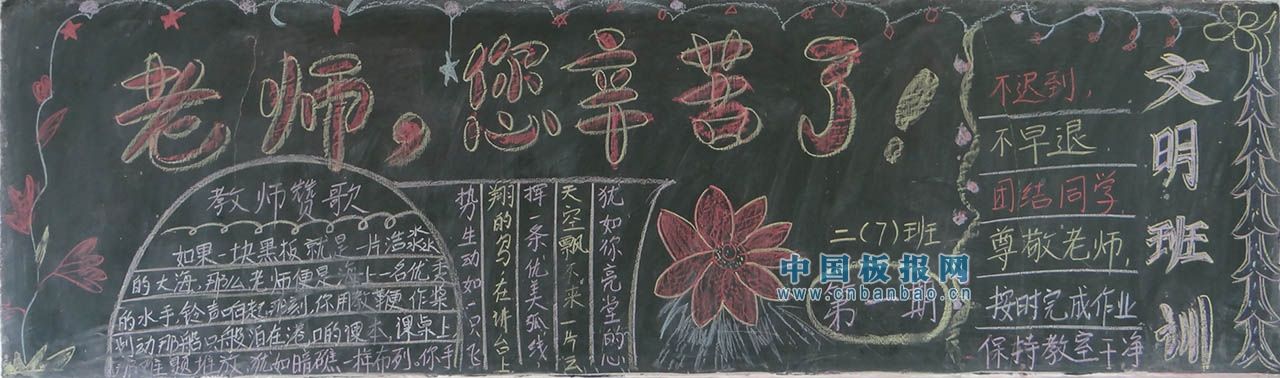 老师，您辛苦了！
教师赞歌
如果一块黑板就是一片浩淼
的大海,那么老师便是海上一名优秀
的水手,铃声响起那刻,你用教鞭作桨
划动那船只般泊在港口的课本,课桌上
难题堆放,犹如暗礁一样布列。你手
势生动如一只飞
翔的鸟,在讲台上
挥一条优美弧线,
天空飘来一片云
犹如你亮堂的心
二(7)班
第一期
中国板报网
www.cnbanbao.cn
不迟到,
不早退,
团结同学
尊敬老师,
按时完成作业
保持教室干净
文明班训